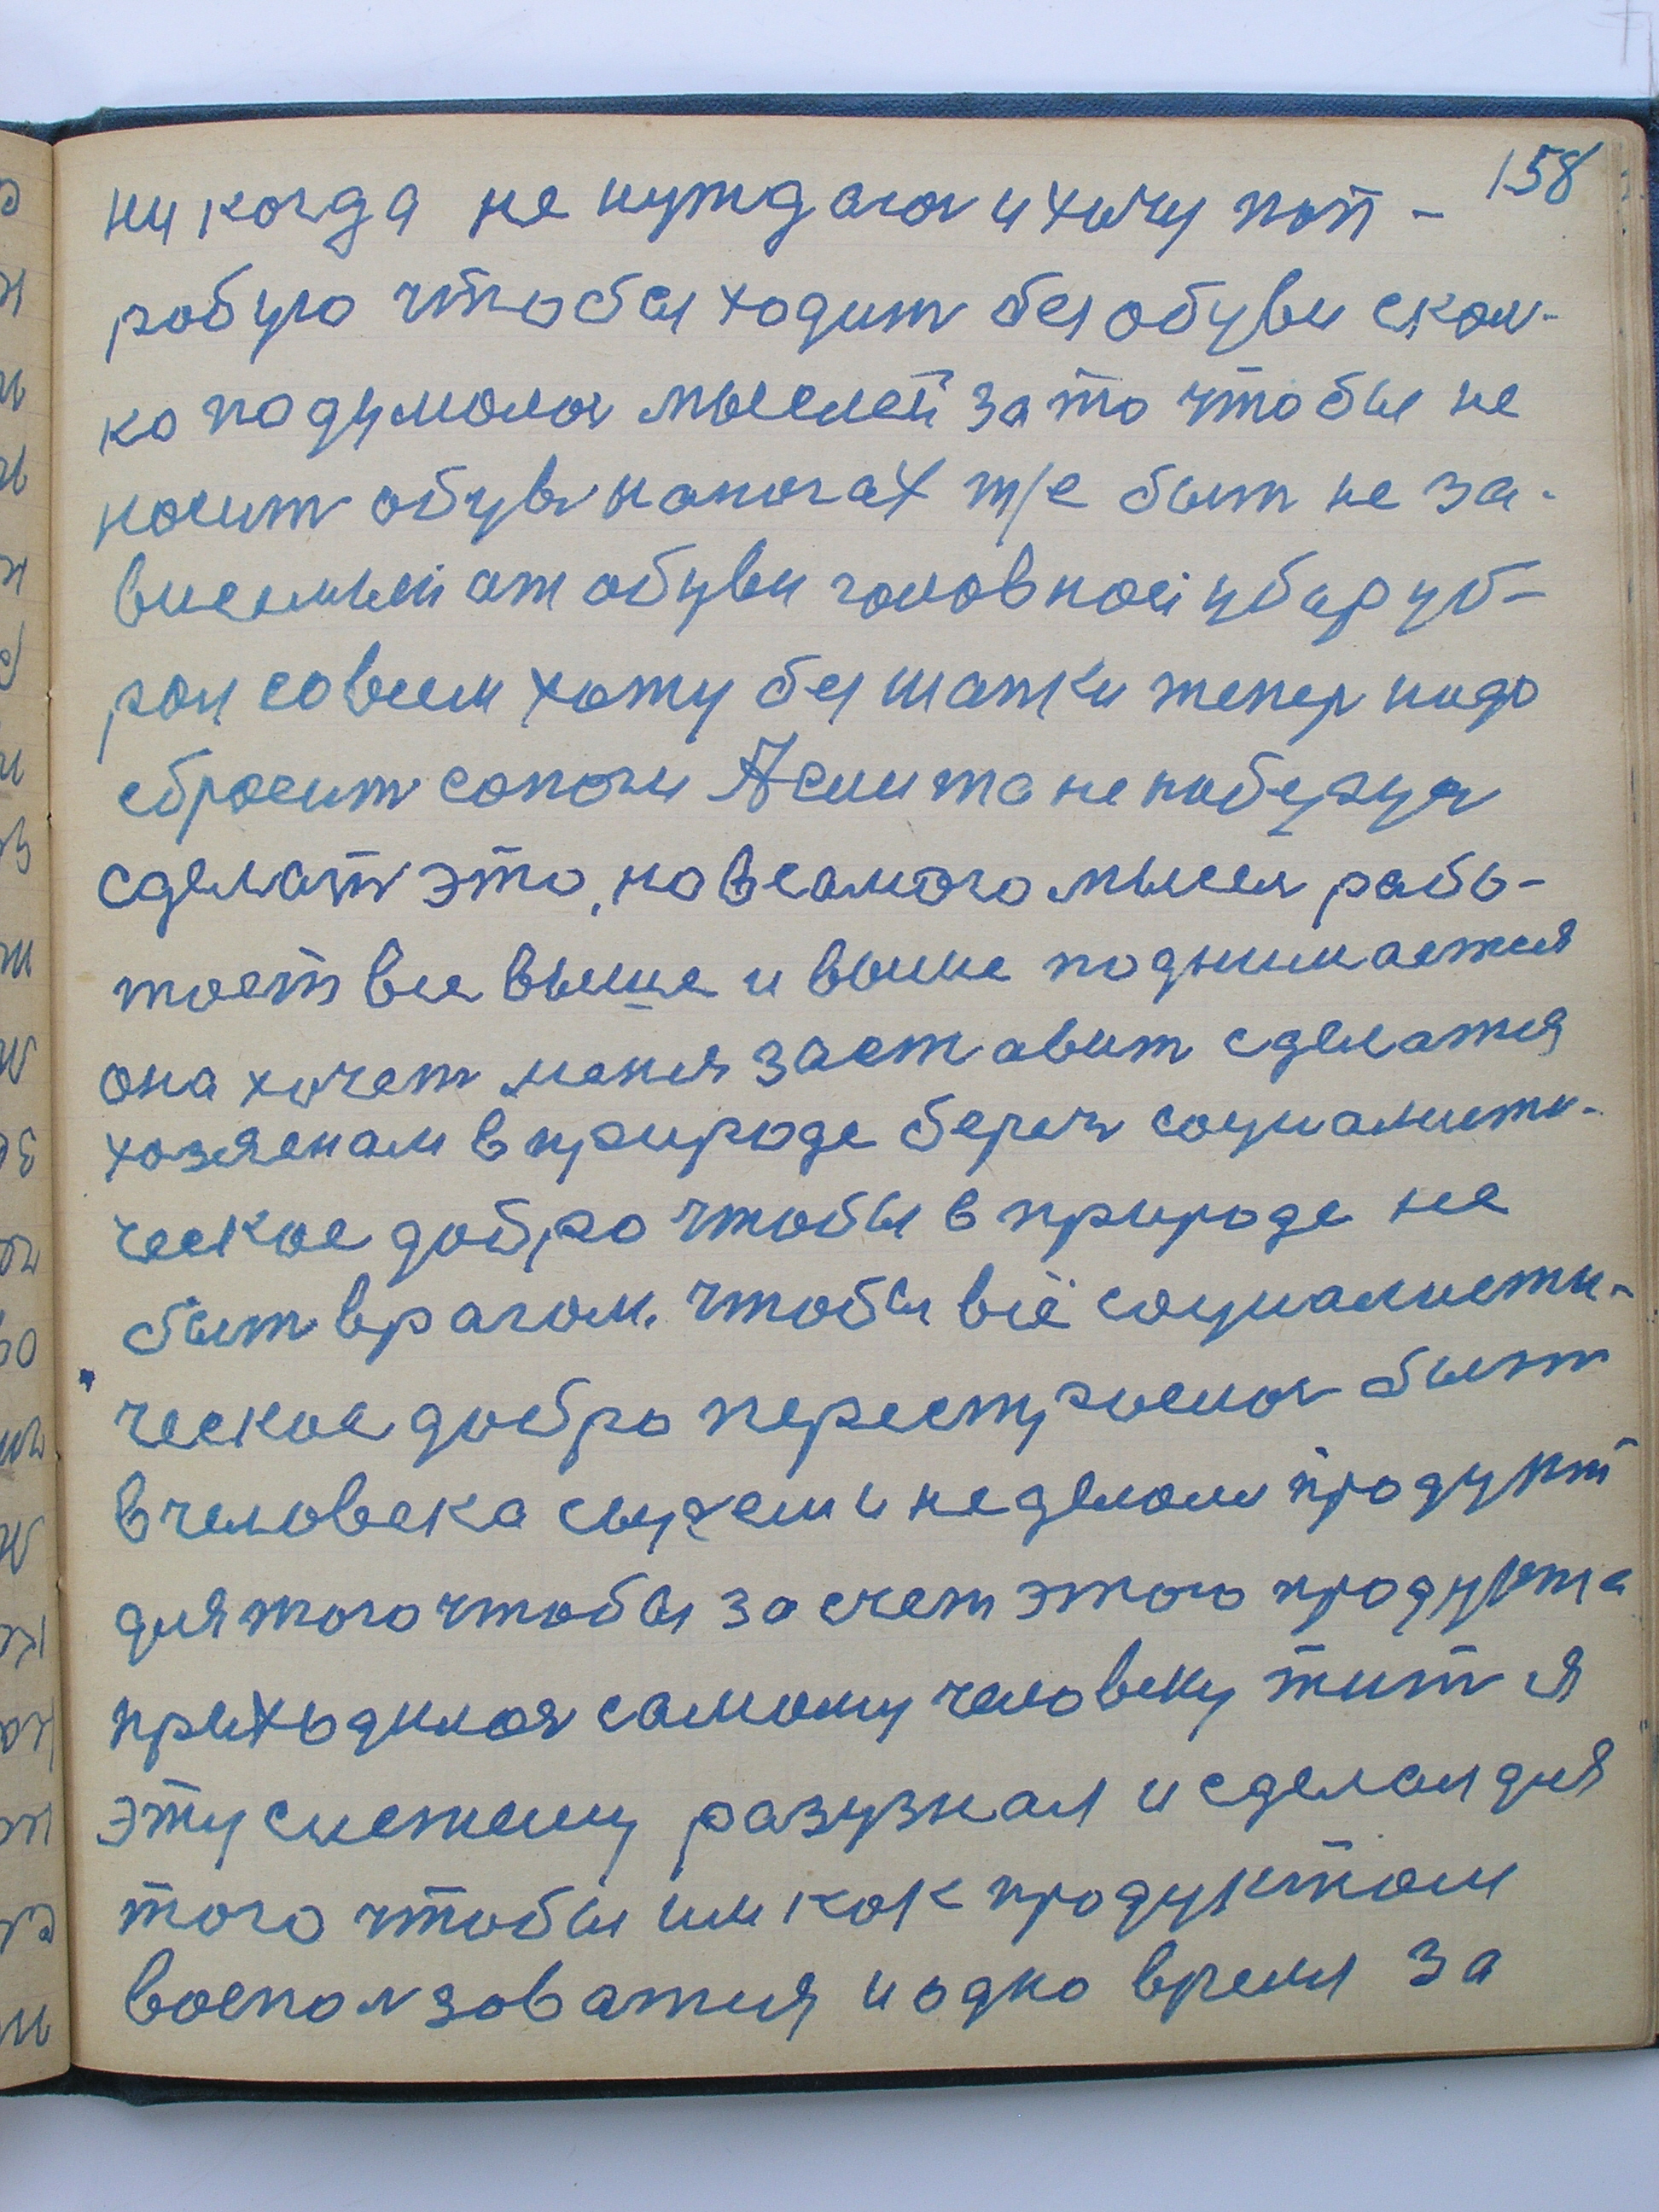 158
ни когда не нуждался и хочу поп-
робую чтобы ходит без обуви скол-
ко подумалос мыслей за то чтобы не
носит обув на ногах т/е быт не за-
висемый от обуви головной убар уб-
рон совсем хожу без шапки тепер надо
сбросит сапоги
сделат это, но в самого мысел рабо-
тоет все выше и выше поднимается
она хочет меня заставит сделатся
хозяенам в природе береч социалисти-
ческое добро чтобы в природе не
быт врагом. чтобы всё социалисти-
ческое добро перестроелос быт
в человека сырем и не делоли продукт
для того чтобы за счет этого продукта
приходилос самому человеку жит я
эту систему разузнал и сделал для
того чтобы им как продуктом
восползоватия и одно время за